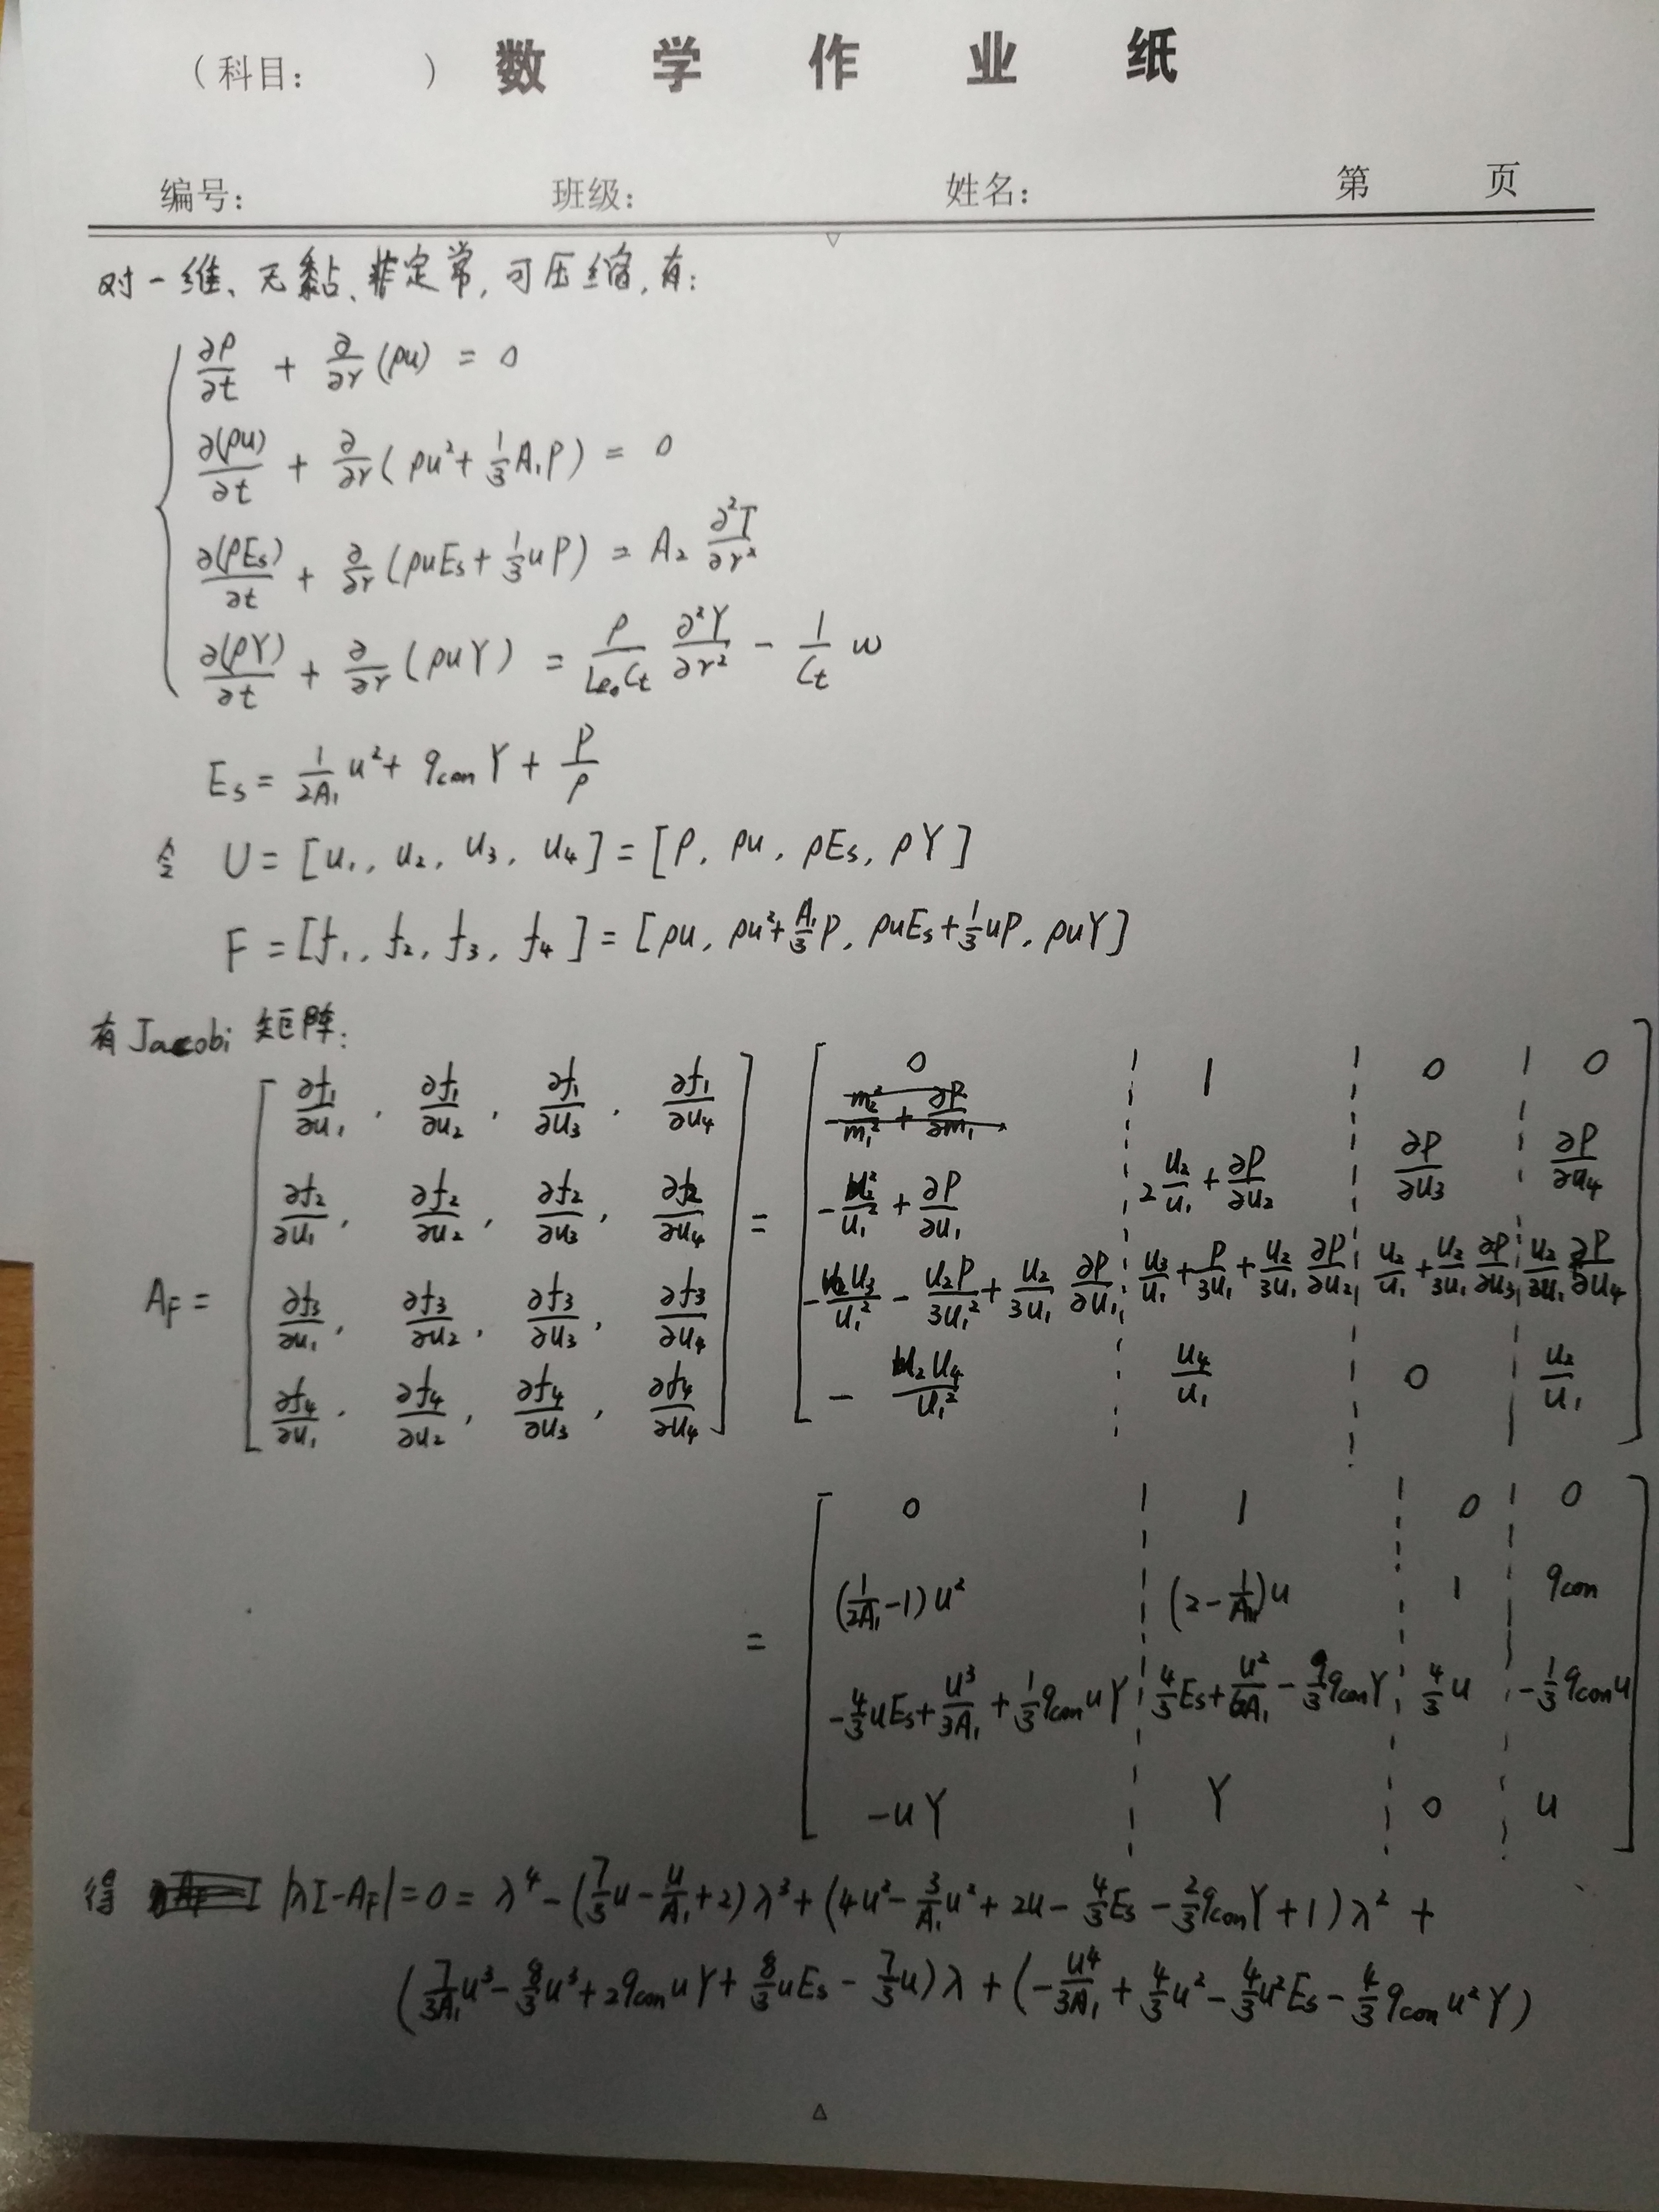 (科目: ) 数 学 作 业 纸
编号: 班级: 姓名: 第 页
对一维、无黏、非定常,可压缩,有:
∂ρ/∂t + ∂/∂r (ρu) = 0
∂(ρu)/∂t + ∂/∂r (ρu² + 1/3 A₁P) = 0
∂(ρEs)/∂t + ∂/∂r (ρuEs + 1/3 uP) = A₂ ∂²T/∂r²
∂(ρY)/∂t + ∂/∂r (ρuY) = ρ/(Le₀Ct) ∂²Y/∂r² - 1/Ct ω
Es = 1/(2A₁) u² + qcon Y + P/ρ
令 U = [u₁, u₂, u₃, u₄] = [ρ, ρu, ρEs, ρY]
F = [f₁, f₂, f₃, f₄] = [ρu, ρu²+A₁/3 P, ρuEs+1/3 uP, ρuY]
有Jacobi 矩阵:
A_F = [ ∂f₁/∂u₁, ∂f₁/∂u₂, ∂f₁/∂u₃, ∂f₁/∂u₄ ] = [ 0 ¦ 1 ¦ 0 ¦ 0 ]
[ ∂f₂/∂u₁, ∂f₂/∂u₂, ∂f₂/∂u₃, ∂f₂/∂u₄ ] [ -u₂²/u₁² + ∂P/∂u₁ ¦ 2 u₂/u₁ + ∂P/∂u₂ ¦ ∂P/∂u₃ ¦ ∂P/∂u₄ ]
[ ∂f₃/∂u₁, ∂f₃/∂u₂, ∂f₃/∂u₃, ∂f₃/∂u₄ ] [ -u₂u₃/u₁² - u₂P/3u₁² + u₂/3u₁ ∂P/∂u₁ ¦ u₃/u₁ + P/3u₁ + u₂/3u₁ ∂P/∂u₂ ¦ u₂/u₁ + u₂/3u₁ ∂P/∂u₃ ¦ u₂/3u₁ ∂P/∂u₄ ]
[ ∂f₄/∂u₁, ∂f₄/∂u₂, ∂f₄/∂u₃, ∂f₄/∂u₄ ] [ - u₂u₄/u₁² ¦ u₄/u₁ ¦ 0 ¦ u₂/u₁ ]
= [ 0 ¦ 1 ¦ 0 ¦ 0 ]
[ (1/2A₁ - 1)u² ¦ (2 - 1/A₁)u ¦ 1 ¦ qcon ]
[ -4/3 uEs + u³/3A₁ + 1/3 qcon uY ¦ 4/3 Es + u²/6A₁ - /3 qcon Y ¦ 4/3 u ¦ -1/3 qcon u ]
[ -uY ¦ Y ¦ 0 ¦ u ]
得 |λI-A_F| = 0 = λ⁴ - (7/3 u - u/A₁ + 2)λ³ + (4u² - 3/A₁ u² + 2u - 4/3 Es - 2/3 qcon Y + 1)λ² +
(7/3A₁ u³ - 8/3 u³ + 2qcon uY + 8/3 uEs - 7/3 u)λ + (-u⁴/3A₁ + 4/3 u² - 4/3 u²Es - 4/3 qcon u²Y)